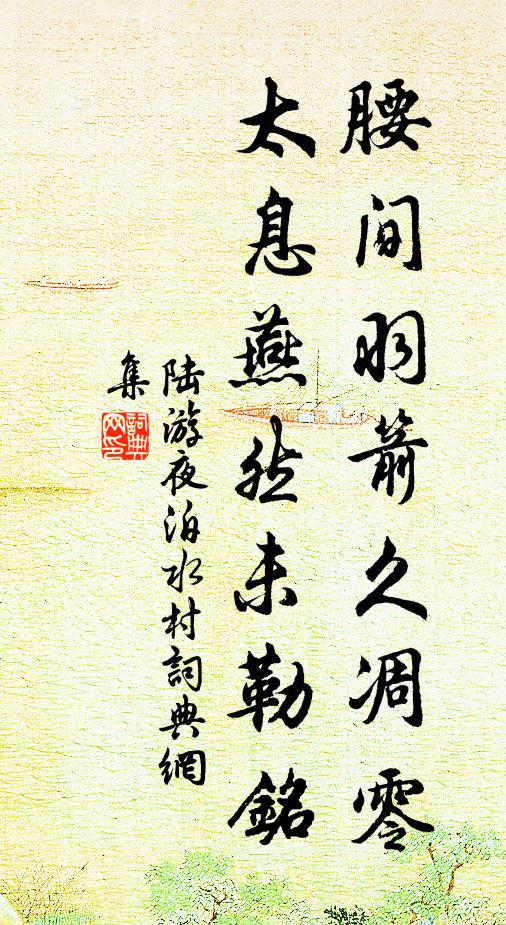 腰間羽箭久凋零
太息燕然未勒銘
陆游夜泊水村詞典網
集
詞典
网印